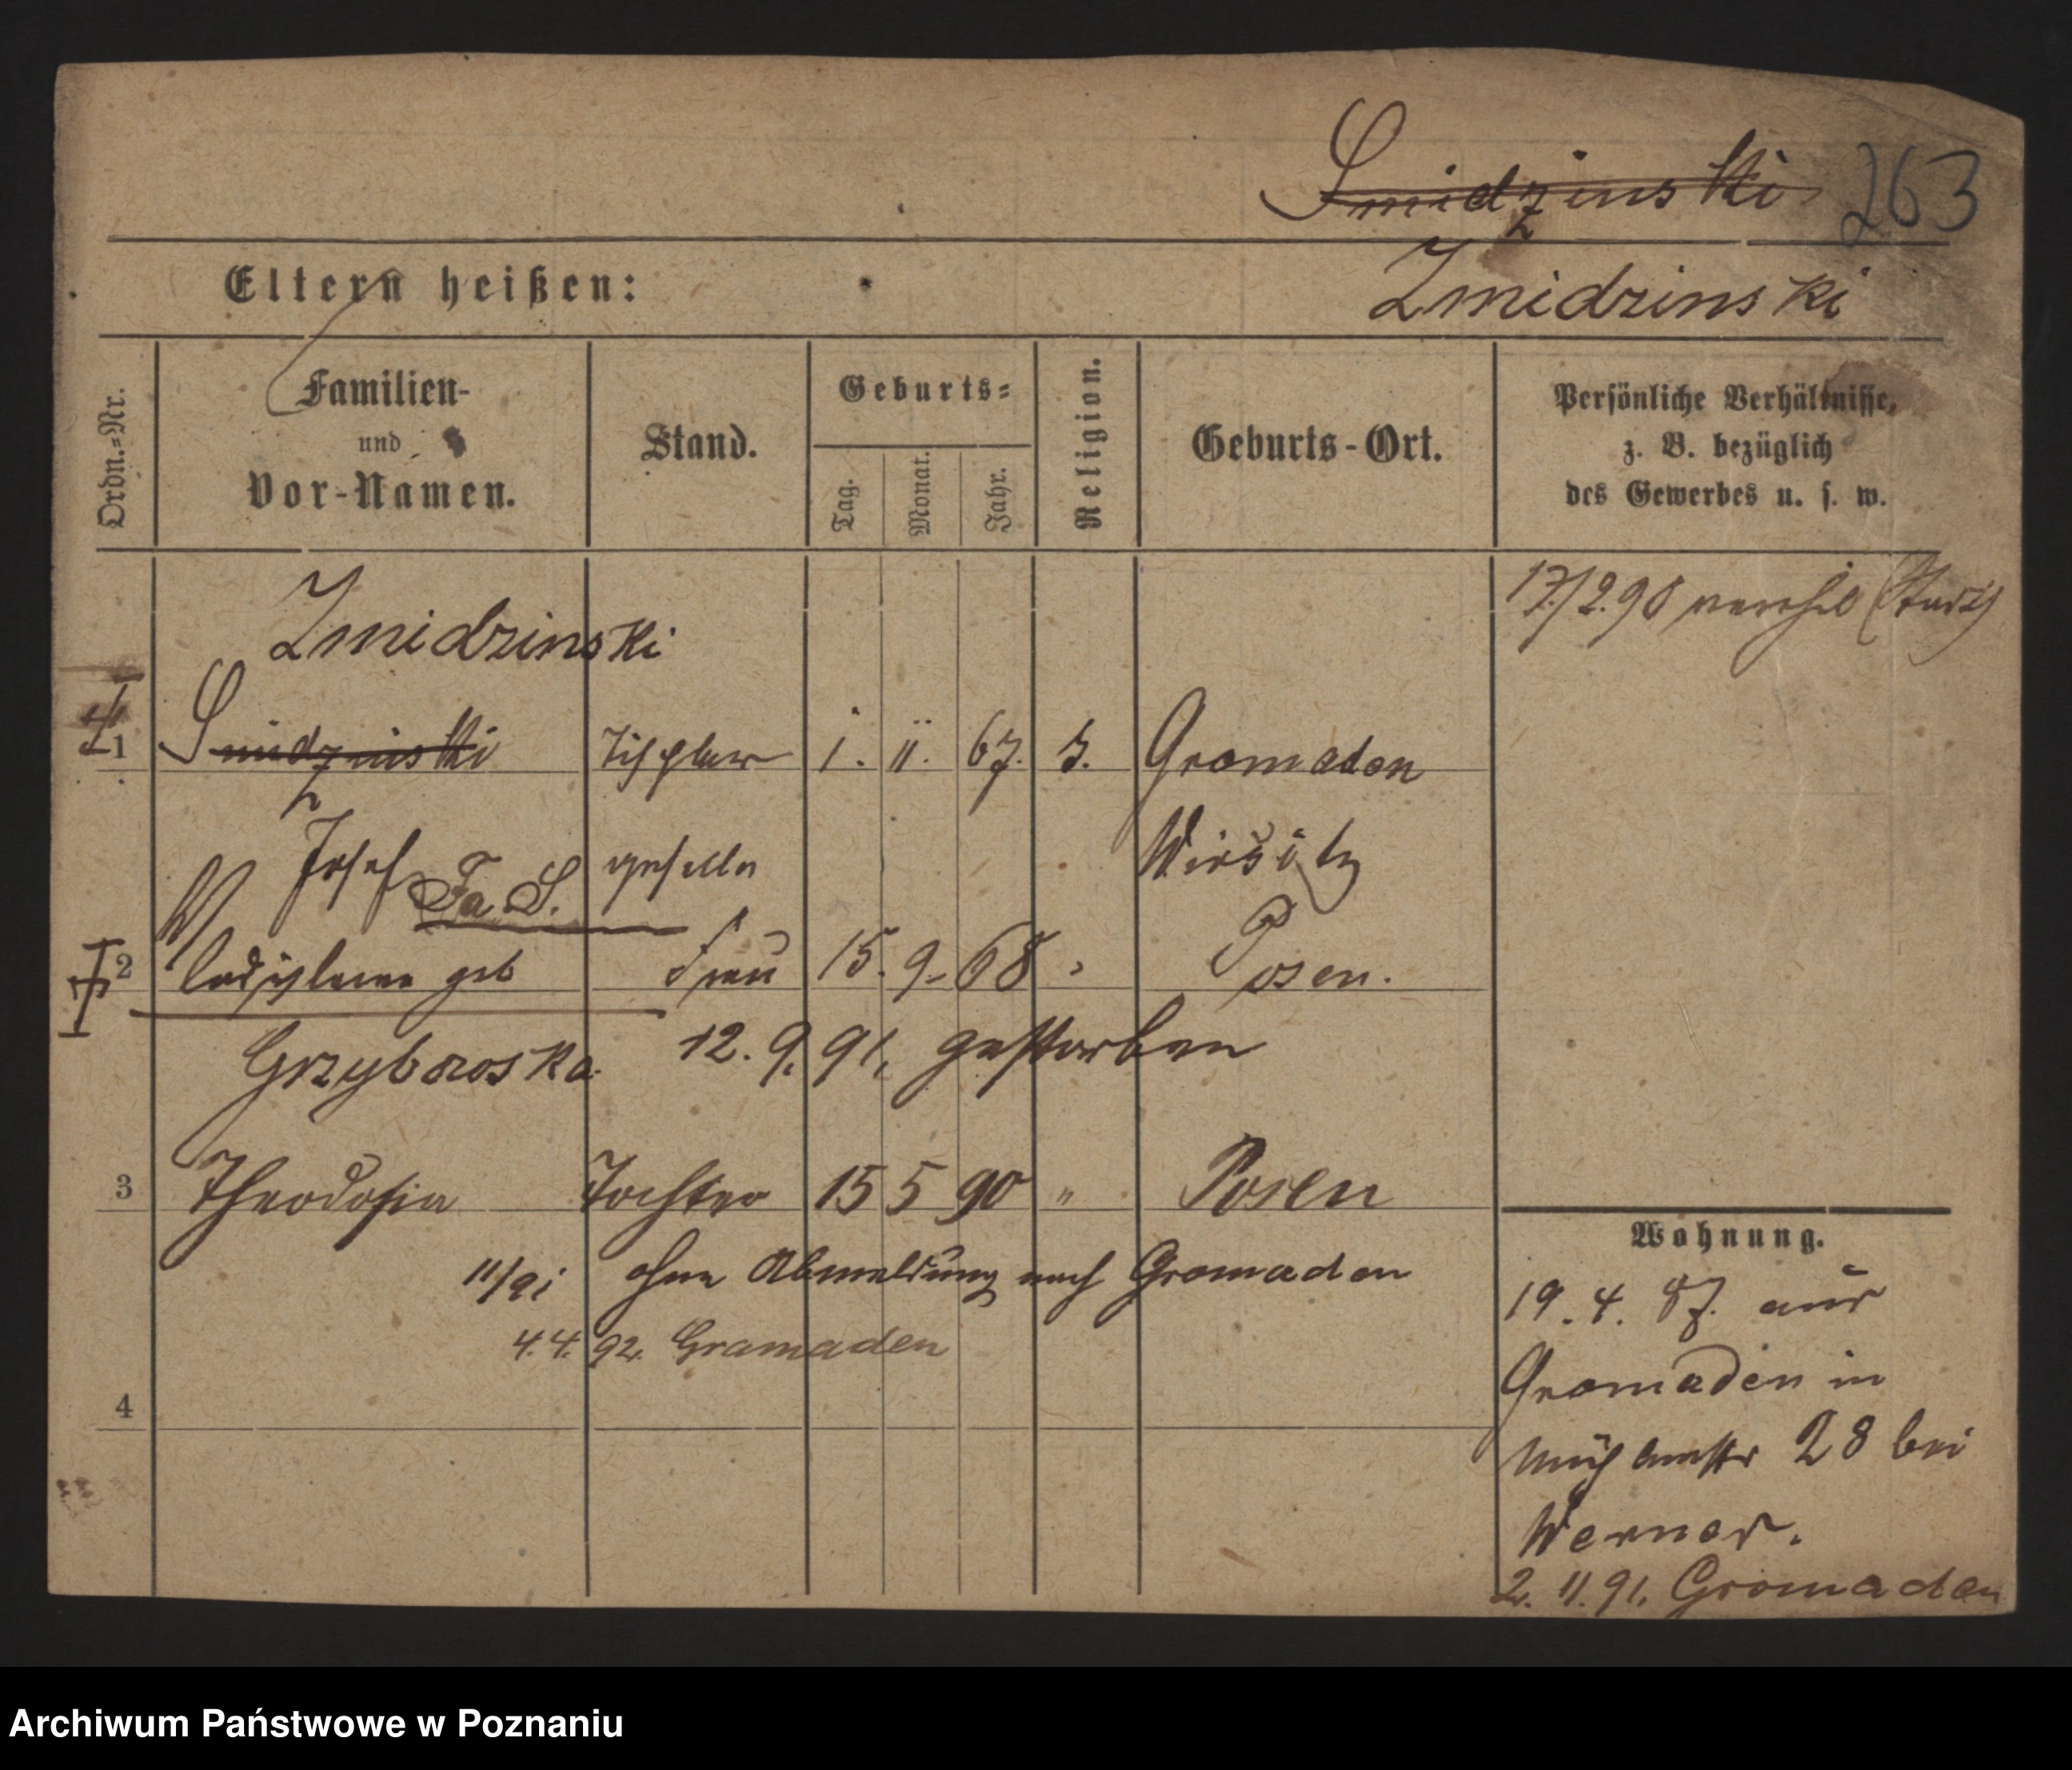 Smidzinski 263
Eltern heißen: Zmidzinski
Ordn.=Nr. Familien- und Vor-Namen. Stand. Geburts= Tag. Monat. Jahr. Religion. Geburts-Ort. Persönliche Verhältnisse, z. B. bezüglich des Gewerbes u. s. w.
Zmidzinski
17/2.90
1 Smidzinski Tischler 1. 11. 67. Gromaden
Josef geselle Wirsitz
Fa S.
2 Wladislawa geb Frau 15. 9. 68 Posen.
12. 9. 91. gestorben
3 Theodosia Tochter 15 5 90 " Posen
11/91 ohne Abmeldung nach Gromaden
4.4.92. Gramaden
4
Wohnung.
19. 4. 87. aus
Gromaden in
Mühlenstr 28 bei
Werner.
2. 11. 91. Gromaden
Archiwum Państwowe w Poznaniu